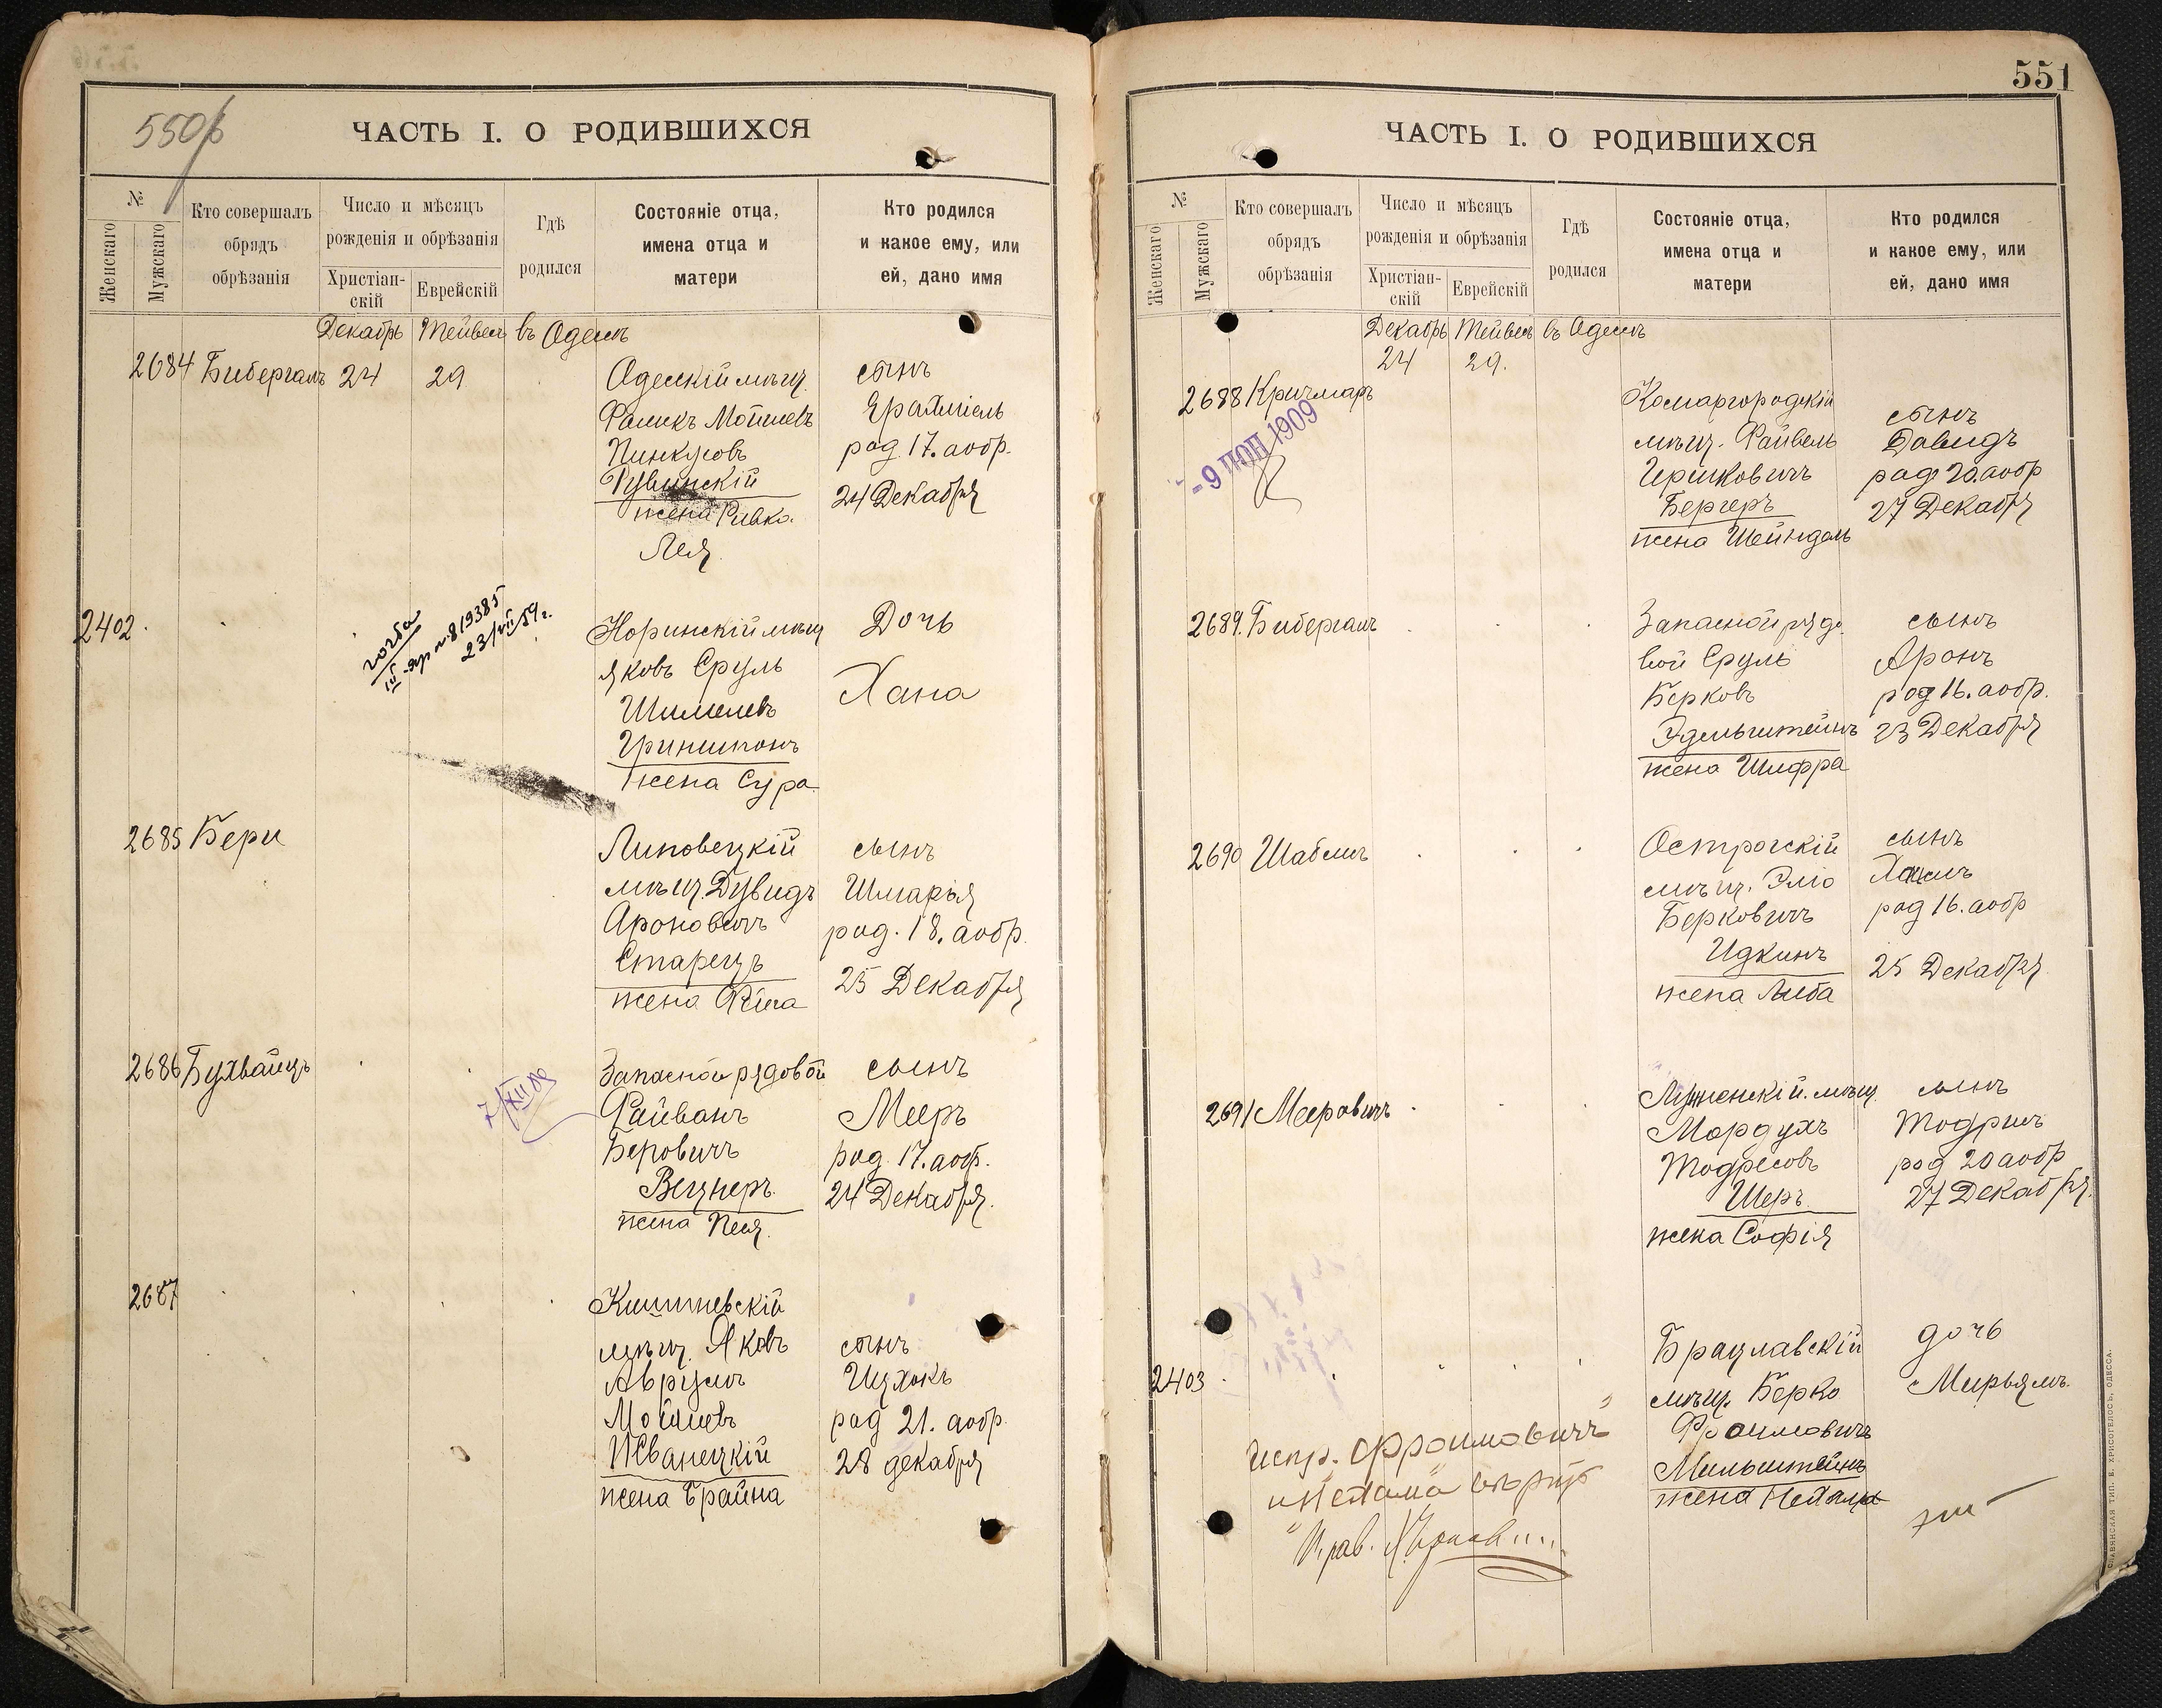 550
ЧАСТЬ I. О РОДИВШИХСЯ
№
Женскаго
Мужскаго
Кто совершалъ
обрядъ
обрѣзанія
Число и мѣсяцъ
рожденія и обрѣзанія
Христіан-
скій
Еврейскій
Гдѣ
родился
Состояніе отца,
имена отца и
матери
Кто родился
и какое ему, или
ей, дано имя
Декабрь Тейвесъ въ Одессѣ
2684 Бибергалъ 24 29
Одесскій мѣщ.
Фаликъ Мошковъ
Пинкусовъ
Рувинскій
жена Ривка
Лея
сынъ
Ерахміель
род. 17. аобр.
24 Декабря
2402.
III-яр № 819385
23/VII 59 г.
Норинскій мѣщ
Яковъ Сруль
Шмилевъ
Гриншпонъ
жена Сура
Дочь
Хана
2685 Бери
Липовецкій
мѣщ. Дувидъ
Ароновичъ
Старецъ
жена
сынъ
Шмарья
род. 18. аобр.
25 Декабря
2686 Бухвайцъ
7/XII
Запасной рядовой
Файванъ
Беровичъ
Вецнеръ
жена Песя
сынъ
Мееръ
род. 17. аобр.
24 Декабря.
2687
Кишиневскій
мѣщ. Яковъ
Аврумъ
Мошковъ
Жванецкій
жена Брайна
сынъ
Ицхокъ
род 21. аобр.
28 декабря
551
ЧАСТЬ I. О РОДИВШИХСЯ
№
Женскаго
Мужскаго
Кто совершалъ
обрядъ
обрѣзанія
Число и мѣсяцъ
рожденія и обрѣзанія
Христіан-
скій
Еврейскій
Гдѣ
родился
Состояніе отца,
имена отца и
матери
Кто родился
и какое ему, или
ей, дано имя
Декабрь Тейвесъ въ Одессѣ
24 29.
2688 Кричмаръ
- 9 1909
Комаргородскій
мѣщ. Файвель
Гершковичъ
Бергеръ
жена Шейндель
сынъ
Давидъ
род 20. аобр
27 Декабря
2689. Бибергалъ
Запасной рядо
вой Сруль
Берковъ
Эдельштейнъ
жена Шифра
сынъ
Аронъ
род 16. аобр.
23 Декабря
2690 Шабсисъ
Острогскій
мѣщ. Эліо
Берковичъ
Идкинъ
жена Либа
сынъ
род 16. аобр
25 Декабря
2691 Мееровичъ
мѣщ.
Мордухъ
Тодресовъ
Шеръ
жена Софія
сынъ
Тодрисъ
род 20 аобр
27 Декабря.
2403
Брацлавскій
мѣщ. Берко
Фроимовичъ
Мильштейнъ
жена
дочь
Мирьямъ.
испр. „Фроимовичъ"
СЛАВЯНСКАЯ ТИП. Е. ХРИСОГЕЛОСЪ, ОДЕССА.